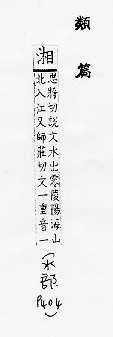 類篇
湘
思將切說文水出零陵陽海山
北入江又師莊切文一重音一
(水部
P404)